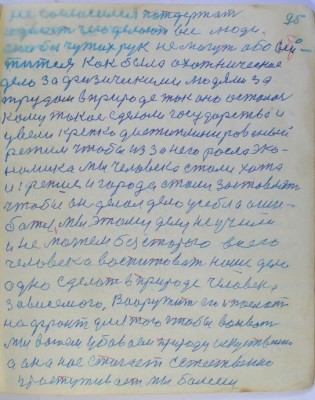 95
не согласился поддержат
сделат что делают все люди.
чтобы чужих рук не могут обо
тится как была охотническое
дело за физическими людями за
трудом в природе так оно осталос
кому такое сделали государство и
увели крепко дистиплинировоный
режим чтобы из за него росла эко-
номика мы человека стали хата
и и города стали заставлять
чтобы он делал дело учебга
мы этому делу не учили
и не можем без старого всего
человека воспитоват наше дело
одно сделат в природе человека
зависемого, Вооружит его послат
на фронт для того чтобы воеват
мы этим убоваем природу искуствено
а она нас стогает естественно
простуживает мы болеем